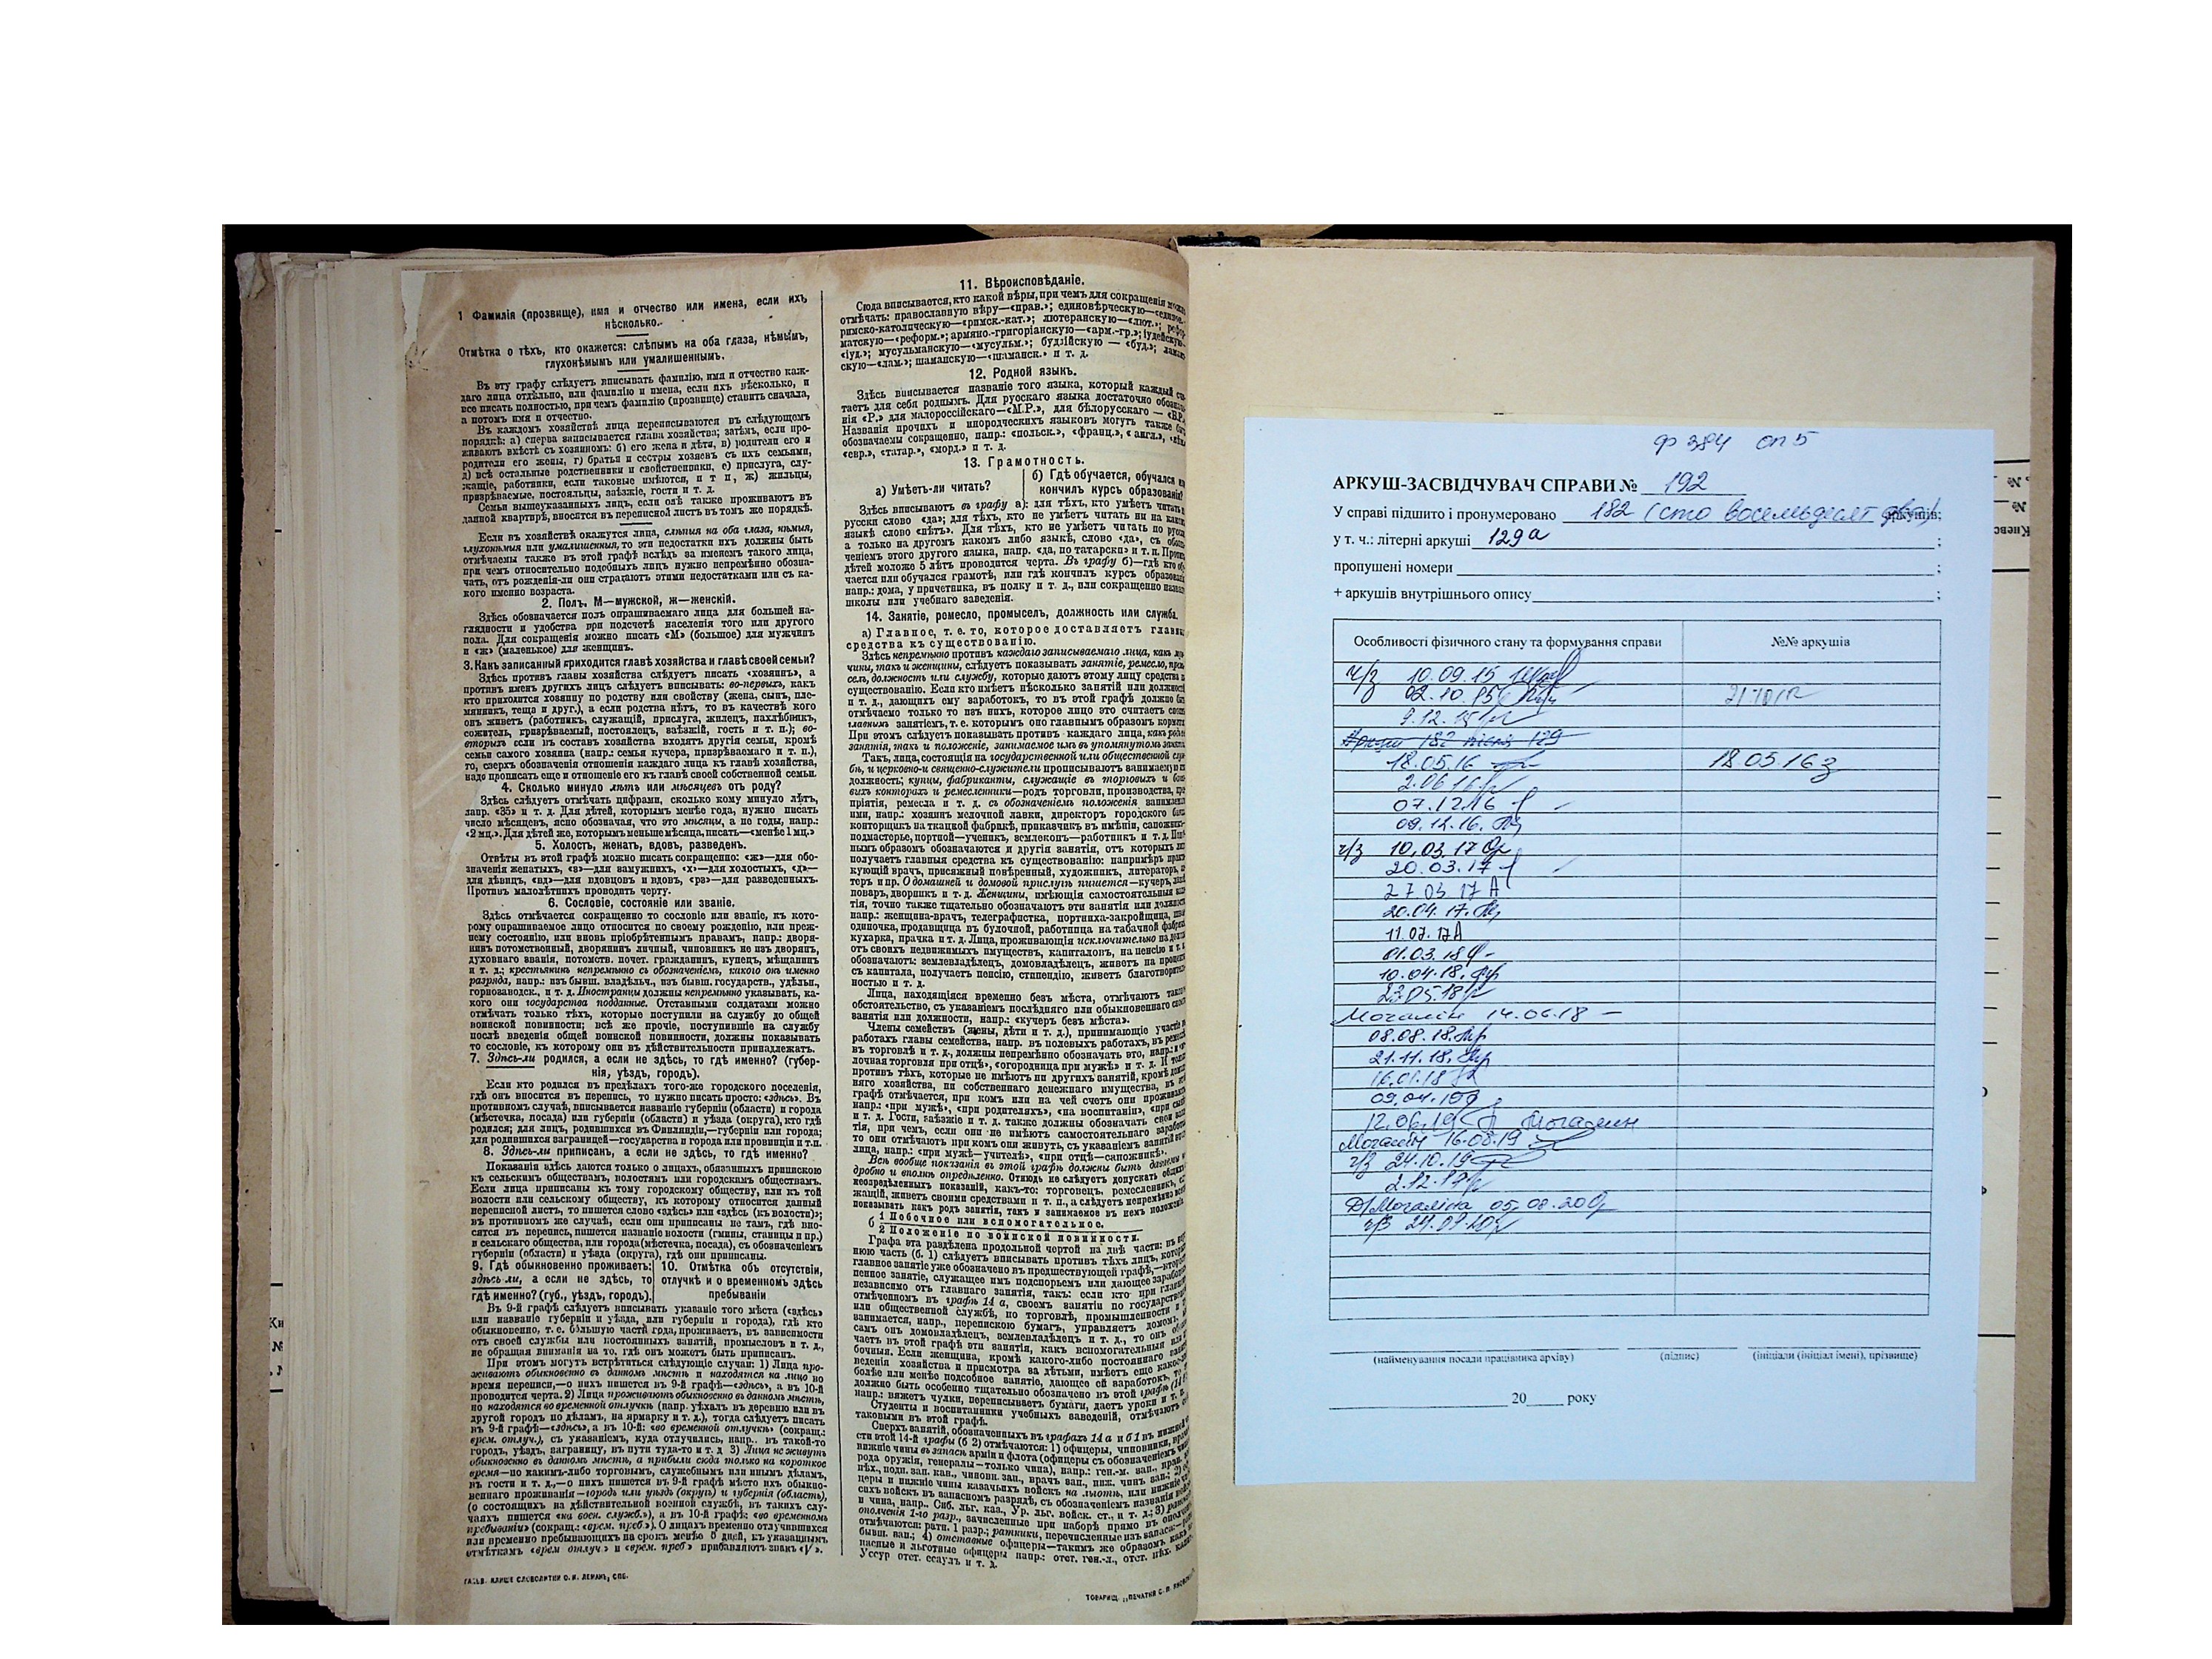 1 Фамилія (прозвище), имя и отчество или имена, если ихъ
нѣсколько.
Отмѣтка о тѣхъ, кто окажется: слѣпымъ на оба глаза, нѣмымъ,
глухонѣмымъ или умалишеннымъ.
Въ эту графу слѣдуетъ вписывать фамилію, имя и отчество каж-
даго лица отдѣльно, или фамилію и имена, если ихъ нѣсколько, и
все писать полностью, при чемъ фамилію (прозвище) ставить сначала,
а потомъ имя и отчество.
Въ каждомъ хозяйствѣ лица переписываются въ слѣдующемъ
порядкѣ: а) сперва записывается глава хозяйства; затѣмъ, если про-
живаютъ вмѣстѣ съ хозяиномъ: б) его жена и дѣти, в) родители его и
родители его жены, г) братья и сестры хозяевъ съ ихъ семьями,
д) всѣ остальные родственники и свойственники, е) прислуга, слу-
жащіе, работники, если таковые имѣются, и т п, ж) жильцы,
призрѣваемые, постояльцы, заѣзжіе, гости и т. д.
Семьи вышеуказанныхъ лицъ, если онѣ также проживаютъ въ
данной квартирѣ, вносятся въ переписной листъ въ томъ же порядкѣ.
Если въ хозяйствѣ окажутся лица, слѣпыя на оба глаза, нѣмыя,
глухонѣмыя или умалишенныя, то эти недостатки ихъ должны быть
отмѣчаемы также въ этой графѣ вслѣдъ за именемъ такого лица,
при чемъ относительно подобныхъ лицъ нужно непремѣнно обозна-
чать, отъ рожденія-ли они страдаютъ этими недостатками или съ ка-
кого именно возраста.
2. Полъ. М—мужской, ж—женскій.
Здѣсь обозначается полъ опрашиваемаго лица для большей на-
глядности и удобства при подсчетѣ населенія того или другого
пола. Для сокращенія можно писать «М» (большое) для мужчинъ
и «ж» (маленькое) для женщинъ.
3. Какъ записанный приходится главѣ хозяйства и главѣ своей семьи?
Здѣсь противъ главы хозяйства слѣдуетъ писать «хозяинъ», а
противъ именъ другихъ лицъ слѣдуетъ вписывать: во-первыхъ, какъ
кто приходится хозяину по родству или свойству (жена, сынъ, пле-
мянникъ, теща и друг.), а если родства нѣтъ, то въ качествѣ кого
онъ живетъ (работникъ, служащій, прислуга, жилецъ, нахлѣбникъ,
сожитель, призрѣваемый, постоялецъ, заѣзжій, гость и т. п.); во-
вторыхъ если въ составъ хозяйства входятъ другія семьи, кромѣ
семьи самого хозяина (напр.: семья кучера, призрѣваемаго и т. п.),
то, сверхъ обозначенія отношенія каждаго лица къ главѣ хозяйства,
надо прописать еще и отношеніе его къ главѣ своей собственной семьи.
4. Сколько минуло лѣтъ или мѣсяцевъ отъ роду?
Здѣсь слѣдуетъ отмѣчать цифрами, сколько кому минуло лѣтъ,
напр. «35» и т. д. Для дѣтей, которымъ менѣе года, нужно писать
число мѣсяцевъ, ясно обозначая, что это мѣсяцы, а не годы, напр.:
«2 мц.». Для дѣтей же, которымъ меньше мѣсяца, писать—«менѣе 1 мц.»
5. Холостъ, женатъ, вдовъ, разведенъ.
Отвѣты въ этой графѣ можно писать сокращенно: «ж»—для обо-
значенія женатыхъ, «з»—для замужнихъ, «х»—для холостыхъ, «д»—
для дѣвицъ, «вд»—для вдовцовъ и вдовъ, «рз»—для разведенныхъ.
Противъ малолѣтнихъ проводить черту.
6. Сословіе, состояніе или званіе.
Здѣсь отмѣчается сокращенно то сословіе или званіе, къ кото-
рому опрашиваемое лицо относится по своему рожденію, или преж-
нему состоянію, или вновь пріобрѣтеннымъ правамъ, напр.: дворя-
нинъ потомственный, дворянинъ личный, чиновникъ не изъ дворянъ,
духовнаго званія, потомств. почет. гражданинъ, купецъ, мѣщанинъ
и т. д.; крестьянинъ непремѣнно съ обозначеніемъ, какого онъ именно
разряда, напр.: изъ бывш. владѣльч., изъ бывш. государств., удѣльн.,
горнозаводск., и т. д. Иностранцы должны непремѣнно указывать, ка-
кого они государства подданные. Отставными солдатами можно
отмѣчать только тѣхъ, которые поступили на службу до общей
воинской повинности; всѣ же прочіе, поступившіе на службу
послѣ введенія общей воинской повинности, должны показывать
то сословіе, къ которому они въ дѣйствительности принадлежатъ.
7. Здѣсь-ли родился, а если не здѣсь, то гдѣ именно? (губер-
нія, уѣздъ, городъ).
Если кто родился въ предѣлахъ того-же городского поселенія,
гдѣ онъ вносится въ перепись, то нужно писать просто: «здѣсь». Въ
противномъ случаѣ, вписывается названіе губерніи (области) и города
(мѣстечка, посада) или губерніи (области) и уѣзда (округа), кто гдѣ
родился; для лицъ, родившихся въ Финляндіи,—губерніи или города;
для родившихся заграницей—государства и города или провинціи и т.п.
8. Здѣсь-ли приписанъ, а если не здѣсь, то гдѣ именно?
Показанія здѣсь даются только о лицахъ, обязанныхъ припискою
къ сельскимъ обществамъ, волостямъ или городскимъ обществамъ.
Если лица приписаны къ тому городскому обществу, или къ той
волости или сельскому обществу, къ которому относится данный
переписной листъ, то пишется слово «здѣсь» или «здѣсь (къ волости)»;
въ противномъ же случаѣ, если они приписаны не тамъ, гдѣ вно-
сятся въ перепись, пишется названіе волости (гмины, станицы и пр.)
и сельскаго общества, или города (мѣстечка, посада), съ обозначеніемъ
губерніи (области) и уѣзда (округа), гдѣ они приписаны.
9. Гдѣ обыкновенно проживаетъ:
здѣсь ли, а если не здѣсь, то
гдѣ именно? (губ., уѣздъ, городъ).
10. Отмѣтка объ отсутствіи,
отлучкѣ и о временномъ здѣсь
пребываніи
Въ 9-й графѣ слѣдуетъ вписывать указаніе того мѣста («здѣсь»
или названіе губерніи и уѣзда, или губерніи и города), гдѣ кто
обыкновенно, т. е. бо́льшую часть года, проживаетъ, въ зависимости
отъ своей службы или постоянныхъ занятій, промысловъ и т. д.,
не обращая вниманія на то, гдѣ онъ можетъ быть приписанъ.
При этомъ могутъ встрѣтиться слѣдующіе случаи: 1) Лица про-
живаютъ обыкновенно въ данномъ мѣстѣ и находятся на лицо во
время переписи,—о нихъ пишется въ 9-й графѣ—«здѣсь», а въ 10-й
проводится черта. 2) Лица проживаютъ обыкновенно въ данномъ мѣстѣ,
но находятся во временной отлучкѣ (напр. уѣхалъ въ деревню или въ
другой городъ по дѣламъ, на ярмарку и т. д.), тогда слѣдуетъ писать
въ 9-й графѣ—«здѣсь», а въ 10-й: «во временной отлучкѣ» (сокращ.:
врем. отлуч.), съ указаніемъ, куда отлучились, напр.. въ такой-то
городъ, уѣздъ, заграницу, въ пути туда-то и т. д 3) Лица не живутъ
обыкновенно въ данномъ мѣстѣ, а прибыли сюда только на короткое
время—по какимъ-либо торговымъ, служебнымъ или инымъ дѣламъ,
въ гости и т. д.,—о нихъ пишется въ 9-й графѣ мѣсто ихъ обыкно-
веннаго проживанія—городъ или уѣздъ (округъ) и губернія (область),
(о состоящихъ на дѣйствительной военной службѣ, въ такихъ слу-
чаяхъ пишется «на воен. служб.»), а въ 10-й графѣ: «во временномъ
пребываніи» (сокращ.: «врем. преб.»). О лицахъ временно отлучившихся
или временно пребывающихъ на срокъ менѣе 5 дней, къ указаннымъ
отмѣткамъ «врем отлуч.» и «врем. преб» прибавляютъ знакъ «V».
11. Вѣроисповѣданіе.
Сюда вписывается, кто какой вѣры, при чемъ для сокращенія можно
отмѣчать: православную вѣру—«прав.»; единовѣрческую—
римско-католическую—«римск.-кат.»; лютеранскую—«лют.»;
матскую—«реформ.»; армяно.-григоріанскую—«арм.-гр.»; іудейскую—
«іуд.»; мусульманскую—«мусульм.»; буддійскую — «буд.»;
скую—«лам.»; шаманскую—«шаманск.» и т. д.
12. Родной языкъ.
Здѣсь вписывается названіе того языка, который каждый
таетъ для себя роднымъ. Для русскаго языка достаточно
нія «Р.» для малороссійскаго—«М.Р.», для бѣлорусскаго — «Б.Р.»
Названія прочихъ и инородческихъ языковъ могутъ также
обозначаемы сокращенно, напр.: «польск.», «франц.», «англ.»,
«евр.», «татар.», «морд.» и т. д.
13. Грамотность.
а) Умѣетъ-ли читать?
б) Гдѣ обучается, обучался или
кончилъ курсъ образованія?
Здѣсь вписываютъ въ графу а): для тѣхъ, кто умѣетъ читать
русски слово «да»; для тѣхъ, кто не умѣетъ читать ни на
языкѣ слово «нѣтъ». Для тѣхъ, кто не умѣетъ читать по русски
а только на другомъ какомъ либо языкѣ, слово «да», съ
ченіемъ этого другого языка, напр. «да, по татарски» и т. п.
дѣтей моложе 5 лѣтъ проводится черта. Въ графу б)—гдѣ кто
чается или обучался грамотѣ, или гдѣ кончилъ курсъ
напр.: дома, у причетника, въ полку и т. д., или сокращенно
школы или учебнаго заведенія.
14. Занятіе, ремесло, промыселъ, должность или служба.
а) Главное, т. е. то, которое доставляетъ
средства къ существованію.
Здѣсь непремѣнно противъ каждаго записываемаго лица, какъ
чины, такъ и женщины, слѣдуетъ показывать занятіе, ремесло,
селъ, должность или службу, которые даютъ этому лицу средства
существованію. Если кто имѣетъ нѣсколько занятій или
и т. д., дающихъ ему заработокъ, то въ этой графѣ должно
отмѣчаемо только то изъ нихъ, которое лицо это считаетъ
главнымъ занятіемъ, т. е. которымъ оно главнымъ образомъ
При этомъ слѣдуетъ показывать противъ каждаго лица, какъ
занятія, такъ и положеніе, занимаемое имъ въ упомянутомъ
Такъ, лица, состоящія на государственной или общественной
бѣ, и церковно-и священно-служители прописываютъ
должность; купцы, фабриканты, служащіе въ торговыхъ и
выхъ конторахъ и ремесленники—родъ торговли, производства,
пріятія, ремесла и т. д. съ обозначеніемъ положенія
ими, напр.: хозяинъ мелочной лавки, директоръ городского
конторщикъ на ткацкой фабрикѣ, приказчикъ въ имѣніи,
подмастерье, портной—ученикъ, землекопъ—работникъ и т. д.
нымъ образомъ обозначаются и другія занятія, отъ которыхъ
получаетъ главныя средства къ существованію: напримѣръ
кующій врачъ, присяжный повѣренный, художникъ, литераторъ,
теръ и пр. О домашней и домовой прислугѣ пишется—кучеръ,
поваръ, дворникъ и т. д. Женщины, имѣющія самостоятельныя
тія, точно также тщательно обозначаютъ эти занятія или
напр.: женщина-врачъ, телеграфистка, портниха-закройщица,
одиночка, продавщица въ булочной, работница на табачной
кухарка, прачка и т. д. Лица, проживающія исключительно на
отъ своихъ недвижимыхъ имуществъ, капиталовъ, на пенсію и т.
обозначаютъ: землевладѣлецъ, домовладѣлецъ, живетъ на
съ капитала, получаетъ пенсію, стипендію, живетъ
ностью и т. д.
Лица, находящіяся временно безъ мѣста, отмѣчаютъ
обстоятельство, съ указаніемъ послѣдняго или обыкновеннаго
занятія или должности, напр.: «кучеръ безъ мѣста».
Члены семействъ (жены, дѣти и т. д.), принимающіе
работахъ главы семейства, напр. въ полевыхъ работахъ, въ
въ торговлѣ и т. д., должны непремѣнно обозначать это,
лочная торговля при отцѣ», «огородница при мужѣ» и т. д.
противъ тѣхъ, которые не имѣютъ ни другихъ занятій, кромѣ
няго хозяйства, ни собственнаго денежнаго имущества, въ
графѣ отмѣчается, при комъ или на чей счетъ они
напр.: «при мужѣ», «при родителяхъ», «на воспитаніи»,
и т. д. Гости, заѣзжіе и т. д. также должны обозначать свои
тія, при чемъ, если они не имѣютъ самостоятельнаго
то они отмѣчаютъ при комъ они живутъ, съ указаніемъ
лица, напр.: «при мужѣ—учителѣ», «при отцѣ—сапожникѣ».
Всѣ вообще показанія въ этой графѣ должны быть
дробно и вполнѣ опредѣленно. Отнюдь не слѣдуетъ допускать
неопредѣленныхъ показаній, какъ-то: торговецъ, ремесленникъ,
жащій, живетъ своими средствами и т. п., а слѣдуетъ непремѣнно
показывать какъ родъ занятія, такъ и занимаемое въ немъ
б 1 Побочное или вспомогательное.
2 Положеніе по воинской повинности.
Графа эта раздѣлена продольной чертой на двѣ части:
нюю часть (б. 1) слѣдуетъ вписывать противъ тѣхъ лицъ,
главное занятіе уже обозначено въ предшествующей графѣ,
пенное занятіе, служащее имъ подспорьемъ или дающее
независимо отъ главнаго занятія, такъ: если кто при
отмѣченномъ въ графѣ 14 а, своемъ занятіи по
или общественной службѣ, по торговлѣ, промышленности и
занимается, напр., перепискою бумагъ, управляетъ домомъ,
самъ онъ домовладѣлецъ, землевладѣлецъ и т. д., то онъ
чаетъ въ этой графѣ эти занятія, какъ вспомогательныя или
бочныя. Если женщина, кромѣ какого-либо постояннаго
веденія хозяйства и присмотра за дѣтьми, имѣетъ еще
болѣе или менѣе подсобное занятіе, дающее ей заработокъ,
должно быть особенно тщательно обозначено въ этой графѣ
напр.: вяжетъ чулки, переписываетъ бумаги, даетъ уроки и т. п.
Студенты и воспитанники учебныхъ заведеній, отмѣчаютъ
таковыми въ этой графѣ.
Сверхъ занятій, обозначенныхъ въ графахъ 14 а и б 1 въ
сти этой 14-й графы (б 2) отмѣчаются: 1) офицеры, чиновники,
нижніе чины въ запасѣ арміи и флота (офицеры съ обозначеніемъ
рода оружія, генералы—только чина), напр.: ген.-м. зап.,
пѣх., подп. зап. кап., чиновн. зап., врачъ зап., ниж. чинъ зап.; 2)
церы и нижніе чины казачьихъ войскъ на льготѣ, или
скихъ войскъ въ запасномъ разрядѣ, съ обозначеніемъ названія
и чина, напр., Сиб. льг. каз., Ур. льг. войск. ст., и т. д.; 3)
ополченія 1-го разр., зачисленные при наборѣ прямо въ
отмѣчаются: ратн. 1 разр.; ратники, перечисленные изъ запаса:
бывш. зап.; 4) отставные офицеры—такимъ же образомъ, какъ
пасные и льготные офицеры напр.: отст. ген.-л., отст. пѣх.
Уссур отст. есаулъ и т. д.
ГАЛЬВ. КЛИШЕ СЛОВОЛИТНИ О. И. ЛЕМАНЪ, СПБ.
ТОВАРИЩ. „ПЕЧАТНЯ С. П.
ф 384 оп 5
АРКУШ-ЗАСВІДЧУВАЧ СПРАВИ № 192
У справі підшито і пронумеровано 182 (сто восемьдесят два) аркушів;
у т. ч.: літерні аркуші 129а ;
пропущені номери ;
+ аркушів внутрішнього опису ;
Особливості фізичного стану та формування справи
№№ аркушів
ч/з 10.09.15
02.10.15
9.12.15
Аркуш 182 після 129
18.05.16
18.05.16 з
2.06.16
07.12.16
09.12.16.
ч/з 10.03.17
20.03.17
27.03.17
20.04.17.
11.07.17
01.03.18
10.04.18.
23.05.18
Могалін 14.06.18 —
08.08.18.
21.11.18.
16.01.18
09.04.19
12.06.19
Могалін 16.08.19
ч/з 24.10.19
2.12.19
Могаліна 05.08.20
ч/з
(найменування посади працівника архіву)
(підпис)
(ініціали (ініціал імені), прізвище)
20 року